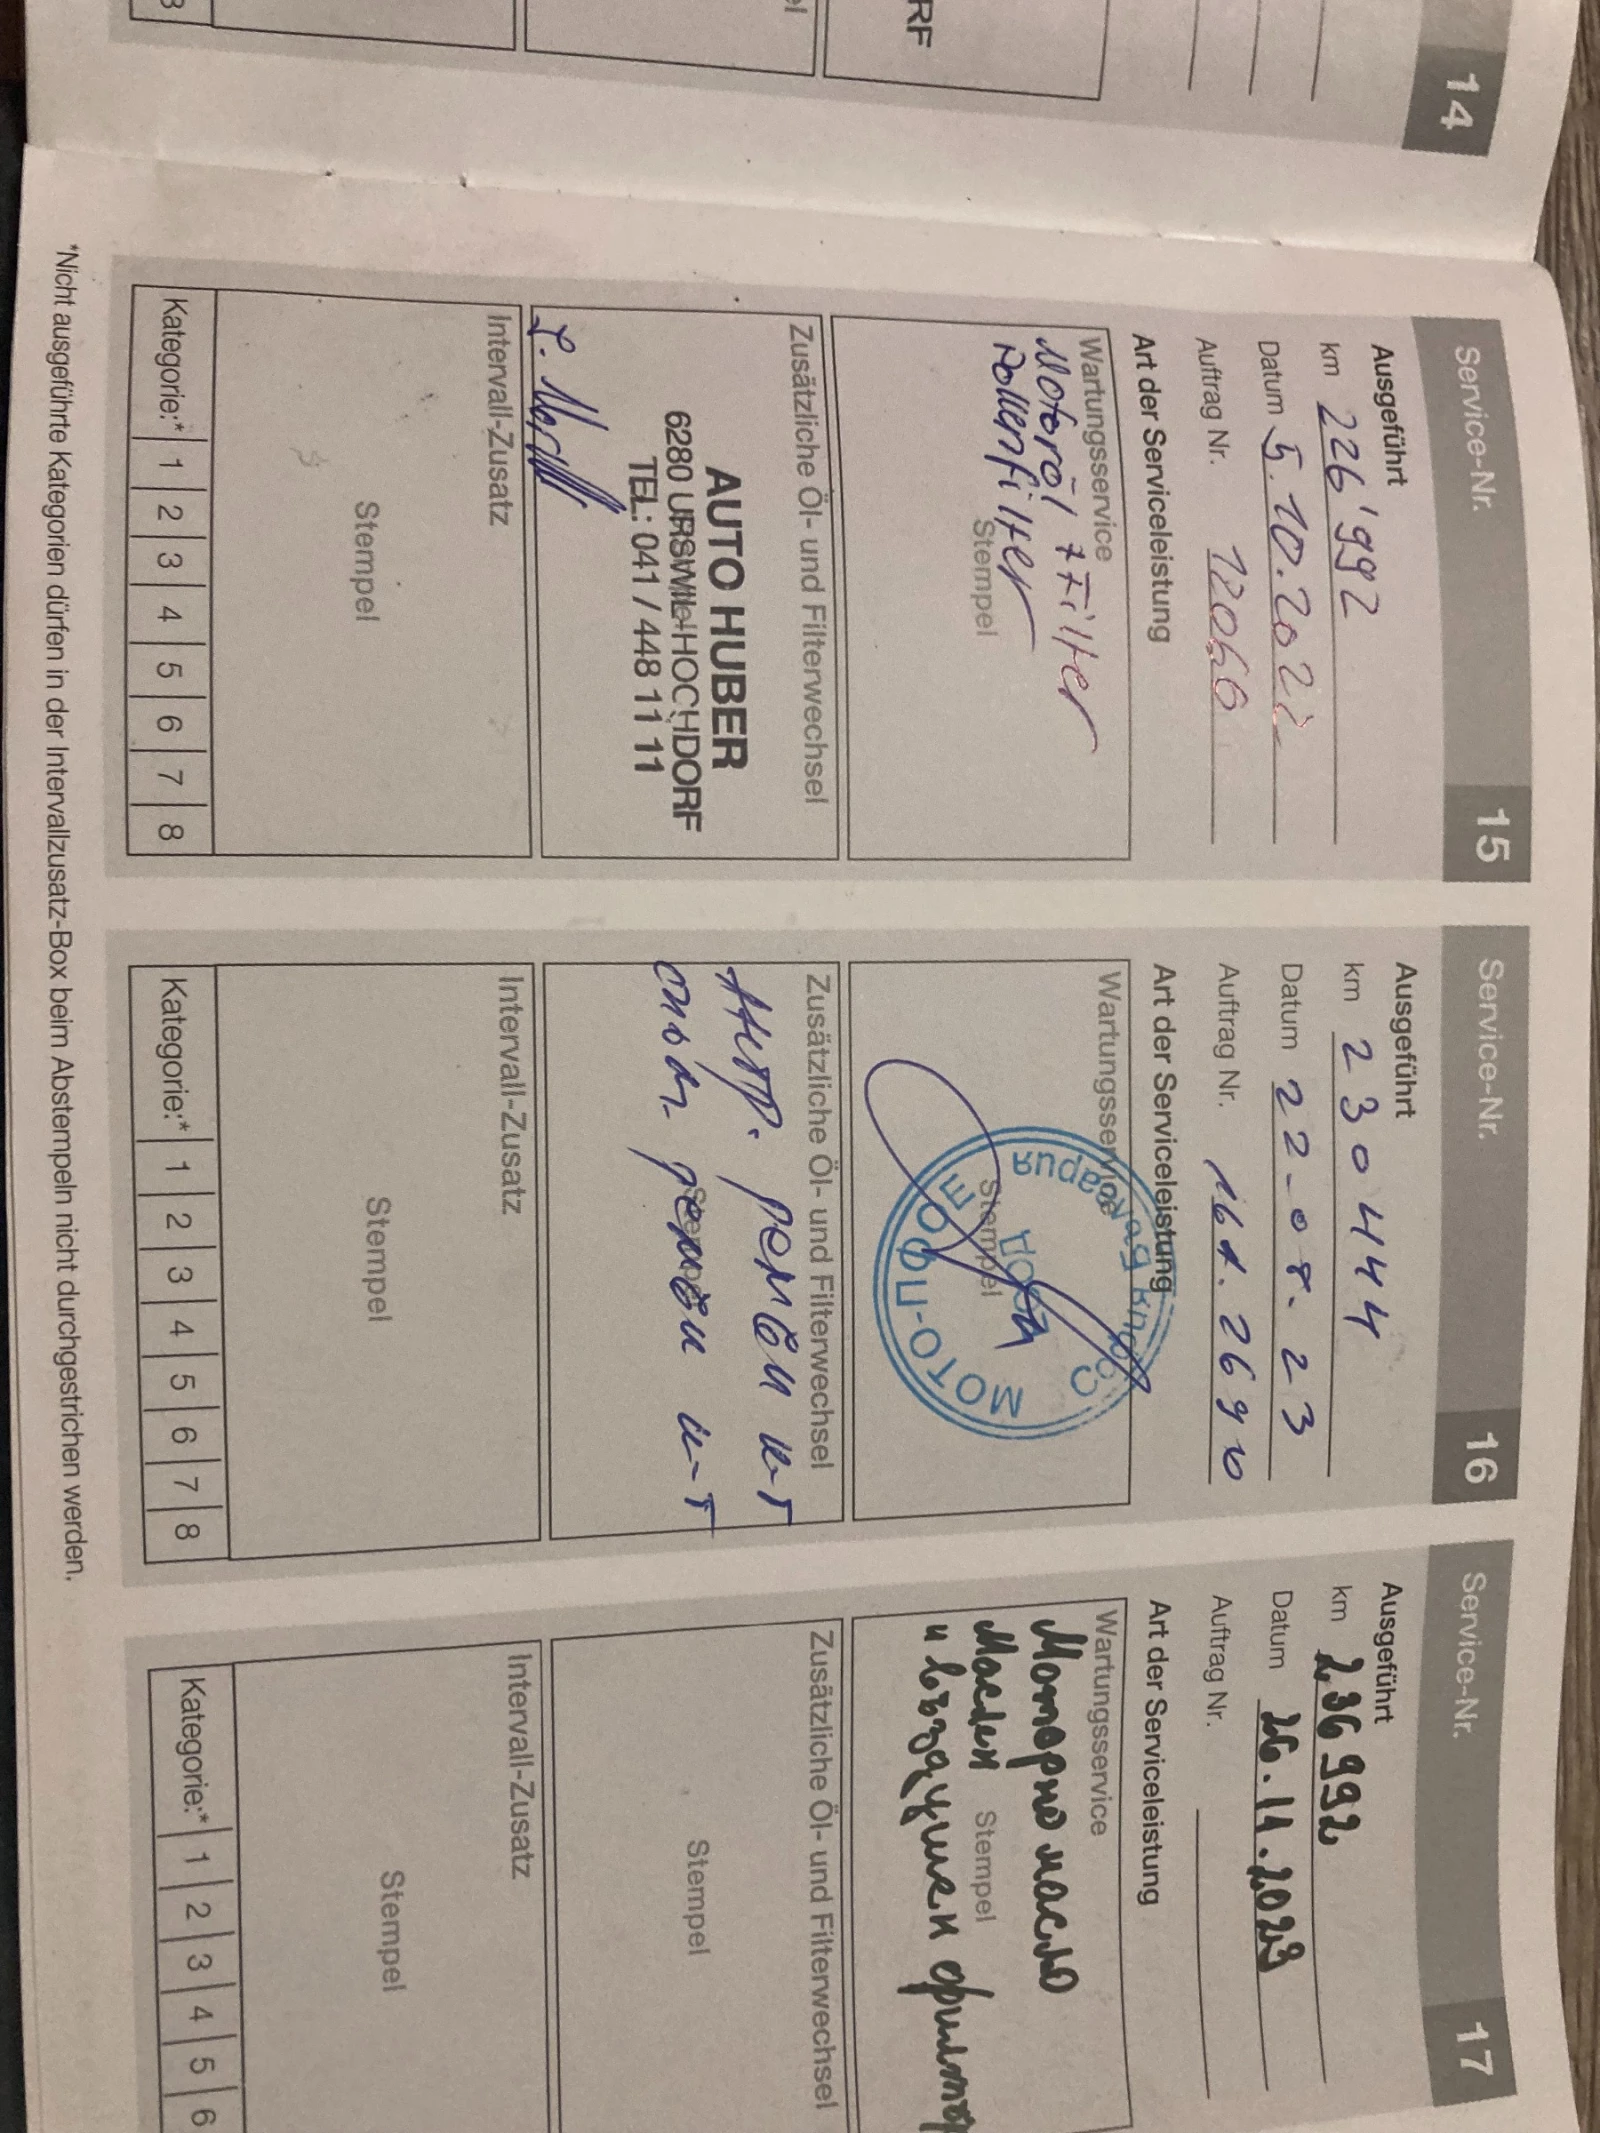 RF
14
Service-Nr. 15
Ausgeführt
km 226'992
Datum 5.10.2022
Auftrag Nr. 12066
Art der Serviceleistung
Wartungsservice
Motoröl + Filter
Pollenfilter
Stempel
Zusätzliche Öl- und Filterwechsel
AUTO HUBER
6280 URSWIL-HOCHDORF
TEL: 041 / 448 11 11
Intervall-Zusatz
Stempel
Kategorie:* 1 2 3 4 5 6 7 8
Service-Nr. 16
Ausgeführt
km 230444
Datum 22-08.23
Auftrag Nr.
Art der Serviceleistung
Wartungsservice
Stempel
МОТО-ПФОЕ
София България
Zusätzliche Öl- und Filterwechsel
ремъци к-т
ремъци к-т
Stempel
Intervall-Zusatz
Stempel
Kategorie:* 1 2 3 4 5 6 7 8
Service-Nr. 17
Ausgeführt
km 236992
Datum 26.11.2023
Auftrag Nr.
Art der Serviceleistung
Wartungsservice
Моторно масло
Маслен
Stempel
и въздушен филтър
Zusätzliche Öl- und Filterwechsel
Stempel
Intervall-Zusatz
Stempel
Kategorie:* 1 2 3 4 5 6
*Nicht ausgeführte Kategorien dürfen in der Intervallzusatz-Box beim Abstempeln nicht durchgestrichen werden.